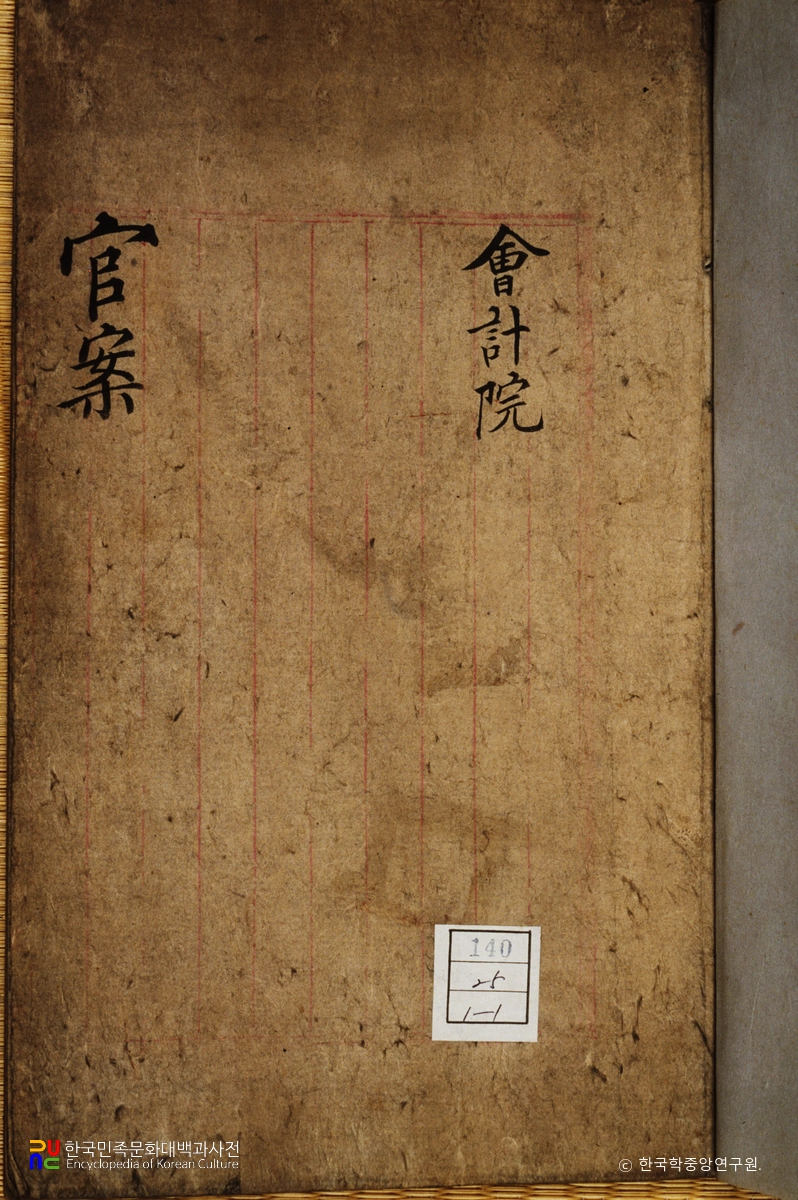 會計院
官案
140
25
1-1
한국민족문화대백과사전
Encyclopedia of Korean Culture
© 한국학중앙연구원.